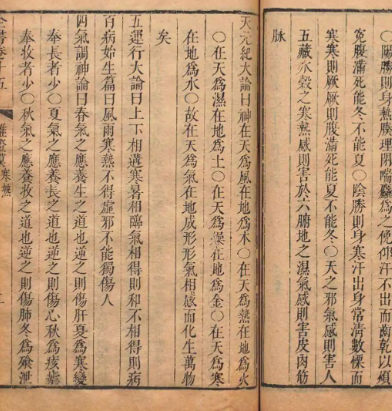 ○陽勝則身熱腠理閉喘麤爲之俛仰汗不出而齒乾以煩
寃腹滿死能冬不能夏○陰勝則身寒汗出身常清數慄而
寒寒則厥厥則腹滿死能夏不能冬○天之邪氣感則害人
五藏水穀之寒熱感則害於六腑地之濕氣感則害皮肉筋
脉
天元紀大論曰神在天爲風在地爲木○在天爲熱在地爲火
○在天爲濕在地爲土○在天爲燥在地爲金○在天爲寒
在地爲水○故在天爲氣在地成形形氣相感而化生萬物
矣
五運行大論曰上下相遘寒暑相臨氣相得則和不相得則病
百病始生篇曰風雨寒熱不得虛邪不能獨傷人
四氣調神論曰春氣之應養生之道也逆之則傷肝夏爲寒變
奉長者少○夏氣之應養長之道也逆之則傷心秋爲痎瘧
奉收者少○秋氣之應養收之道也逆之則傷肺冬爲飱泄
全書卷十五 雜證謨 寒熱